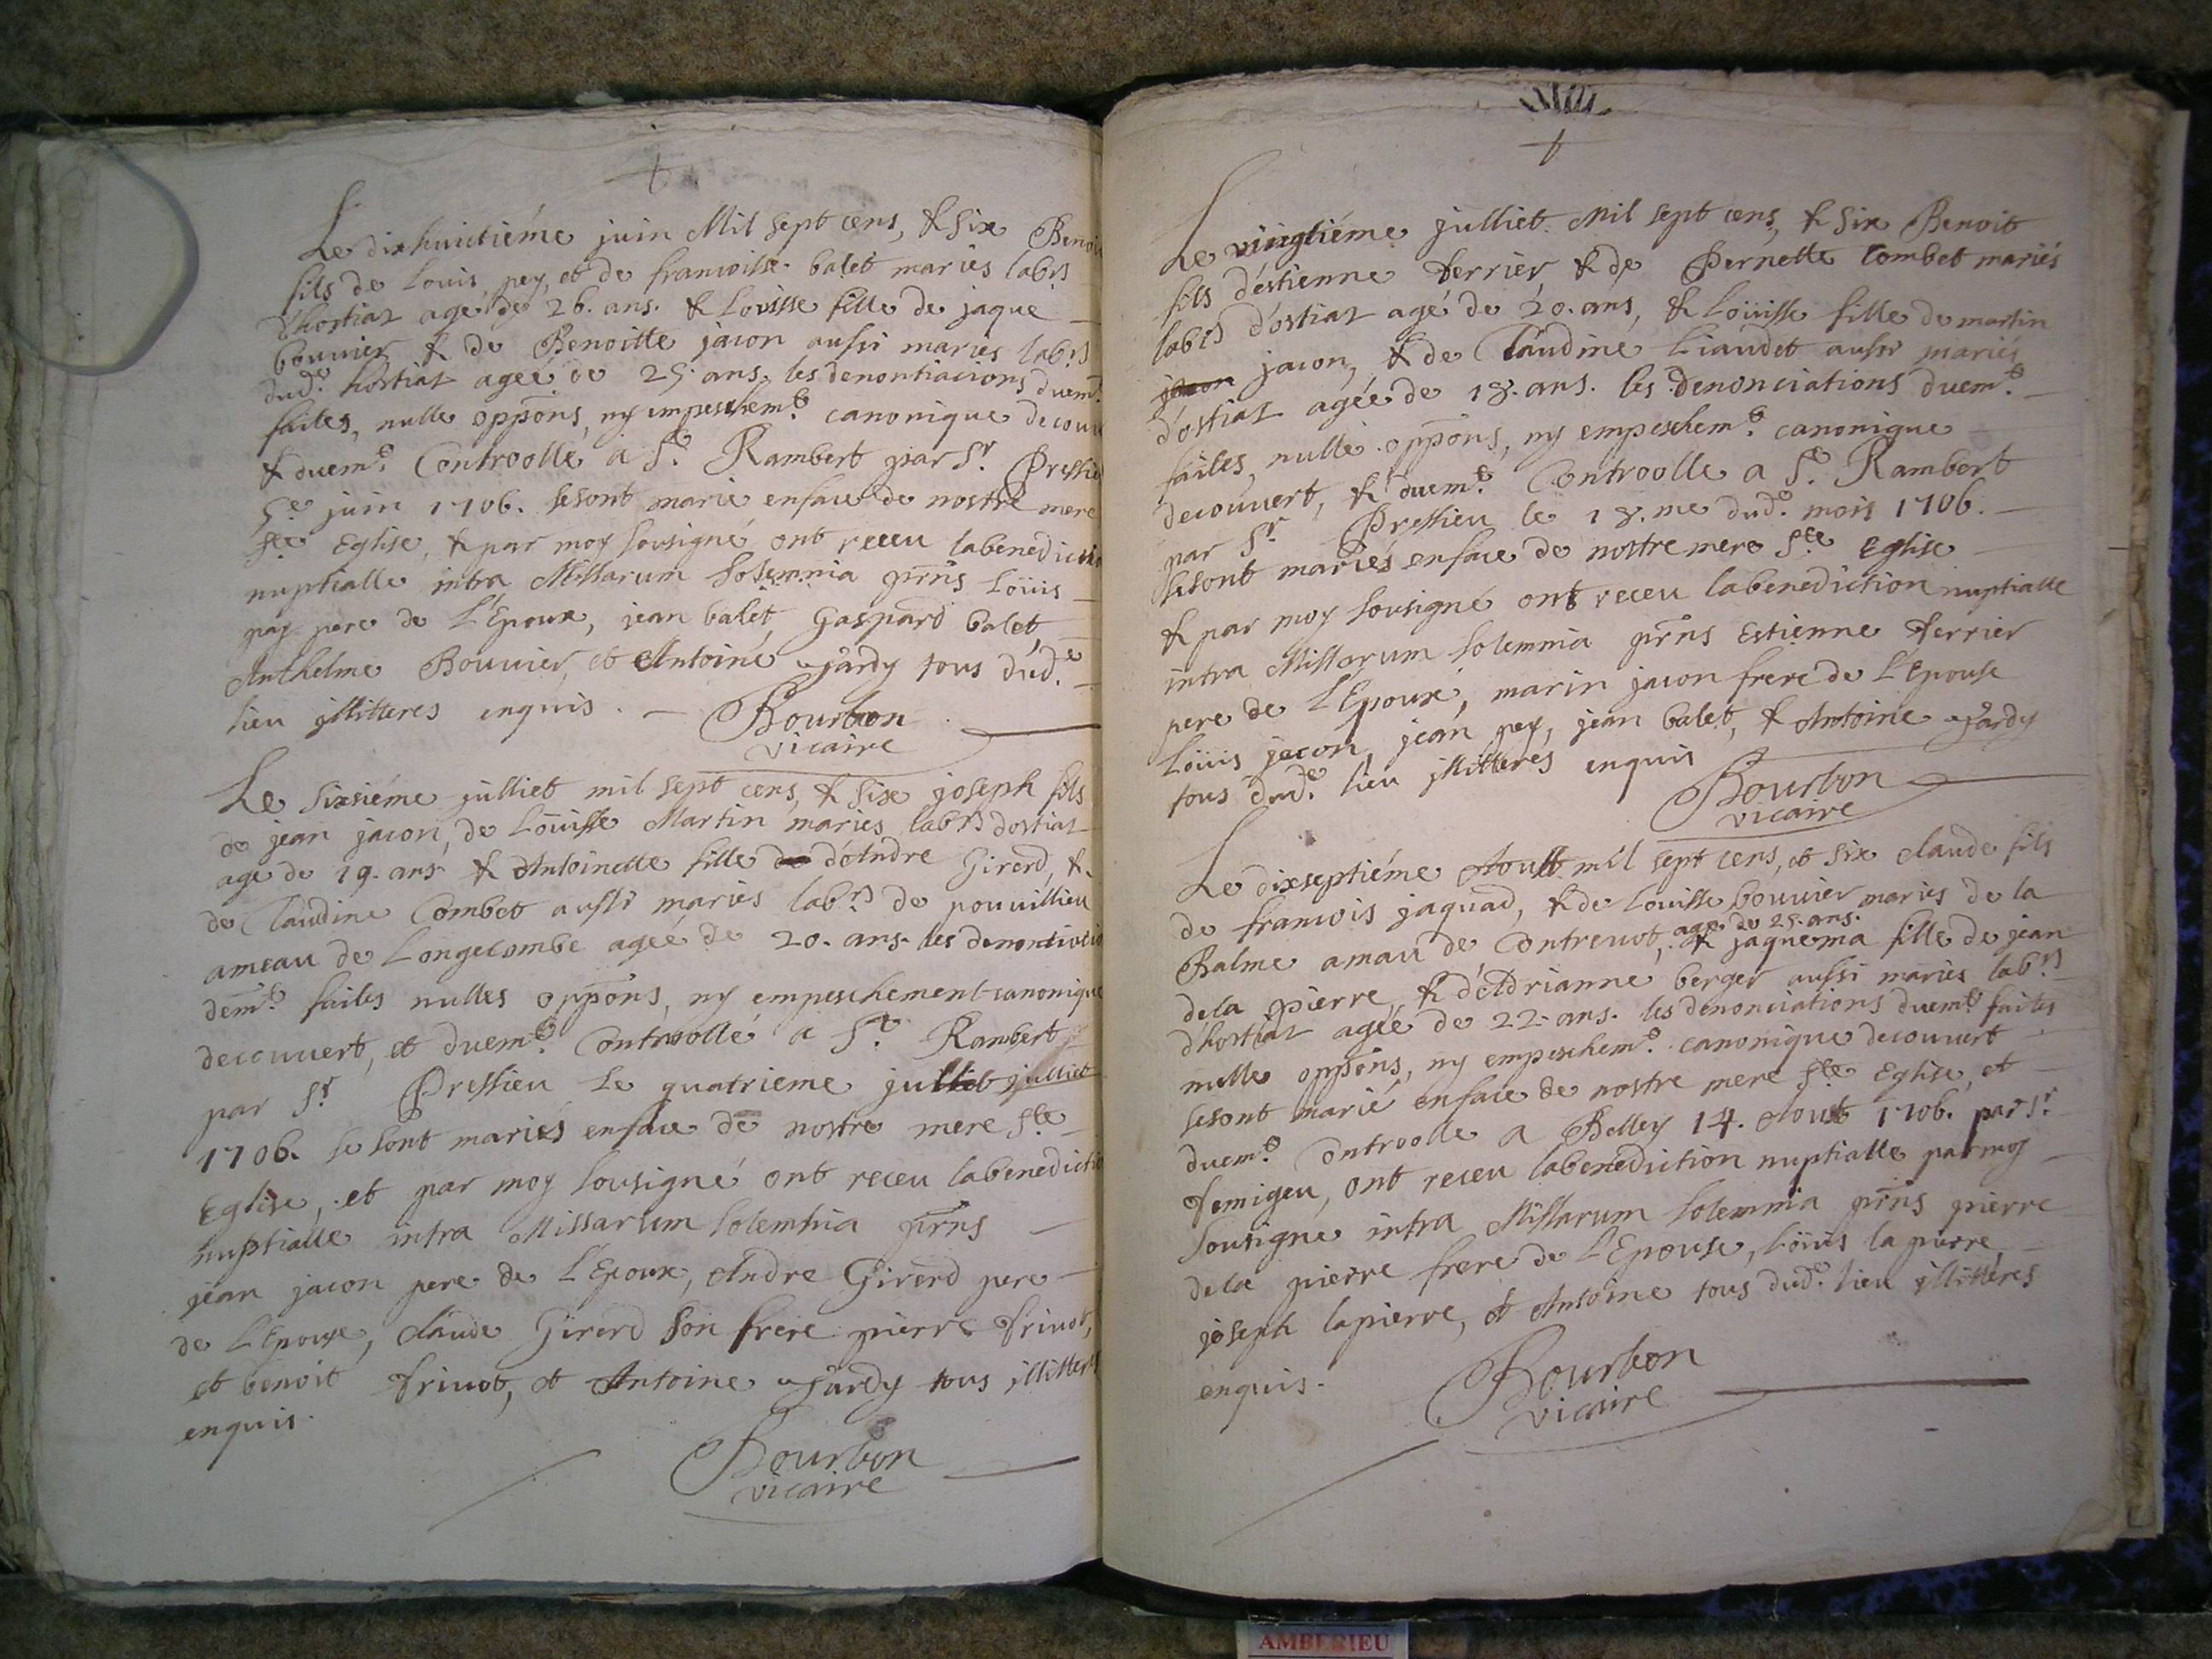 Le dixhuictiéme juin Mil sept cens, & Six Benoi
fils de Louis pey, et de francoisse balet maries lab.rs
d'hostiaz agé de 26. ans. & Loüisse fille de jaque
bouuier & de Benoitte jacon aussi maries lab.rs
dud.e hostiaz ageé de 25. ans. les denontiacions duem.t
faites, nulle oppōns, ny empeschem.t canonique decouu
& duem.t Controollé a S.t Rambert par S.r Pressieu
5.e juin 1706. se sont marié en face de nostre mere
S.te Eglise, & par moy sousigné ont receu la benedictio
nuptialle intra Missarum Solemnia pr̄ns Loüis
pay pere de L'Epoux, jean balet, Gaspard balet,
Anthelme Bouuier, et Antoine jardy tous dud.e
lieu jllitteres enquis. Bourbon
vicaire
Le Sixsiéme julliet mil sept cens, & Six joseph fils
de jean jacon, de Loüisse Martin maries lab.rs dostiaz
agé de 19. ans & Antoinette fille de d'Andre Girerd, &
de Claudine Combet aussi maries lab.rs de pouuillieu
ameau de Longecombe ageé de 20. ans. les denontiatio
dem.t faites nulles oppōns, ny empeschement canonique
decouuert, et duem.t Controollé a S.t Rambert
par S.r Pressieu Le quatrieme julliet julliet
1706. se sont mariés en face de nostre mere S.te
Eglise, et par moy sousigné ont receu la benedictio
nuptialle intra Missarum solemnia pr̄ns
jean jacon pere de L'Epoux, Andre Girerd pere
de L'Epouse, Claude Girerd son frere pierre friuot,
et benoit friuot, et Antoine jardy tous jllitteres
enquis.
Bourbon
vicaire
Le vingtiéme julliet Mil sept cens, & Six Benoit
fils d'éstienne ferrier & de Pernette Combet mariés
lab.rs d'ostiaz agé de 20. ans, & Loüisse fille de martin
jacon jacon, & de Claudine Liaudet aussi mariés
d'ostiaz agéé de 18. ans. les denonciations duem.t
faites, nulle oppōns, ny empeschem.t canonique
decouuert, & duem.t Controolle a S.t Rambert
par S.r Pressieu le 18.me dud.e mois 1706.
se sont mariés en face de nostre mere S.te Eglise
& par moy sousigné ont receu la benediction nuptialle
intra Missarum solemnia pr̄ns Estienne ferrier
pere de L'Epoux, marin jacon frere de L'Epouse
Loüis jacon, jean pey, jean balet, & Antoine jardy
tous dud.e lieu jllitteres enquis
Bourbon
vicaire
Le dixseptiéme Aoust mil sept cens, et Six Claude fils
de francois jaquad, & de Louisse bouuier maries de la
Balme amau de Contreuot, agé de 25. ans. & jaquema fille de jean
de la pierre & d'Adrianne berger aussi mariés lab.rs
d'hostiaz agéé de 22. ans. les denonciations duem.t faites
nulle oppōns, ny empeschem.t canonique decouuert
se sont marié en face de nostre mere S.te Eglise, et
duem.t Controolle a Belley 14. Aoust 1706. par S.r
femigeu, ont receu la benediction nuptialle par moy
sousigné intra Missarum solemnia pr̄ns pierre
de la pierre frere de L'Epouse, Loüis la pierre,
joseph lapierre, et Antoine tous dud.e lieu jllitteres
enquis.
Bourbon
vicaire
AMBERIEU